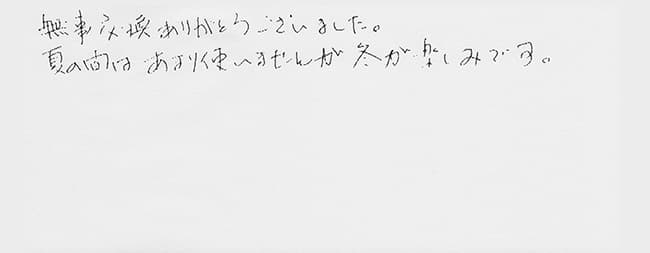 無事交換ありがとうございました。
夏の間はあまり使いませんが冬が楽しみです。